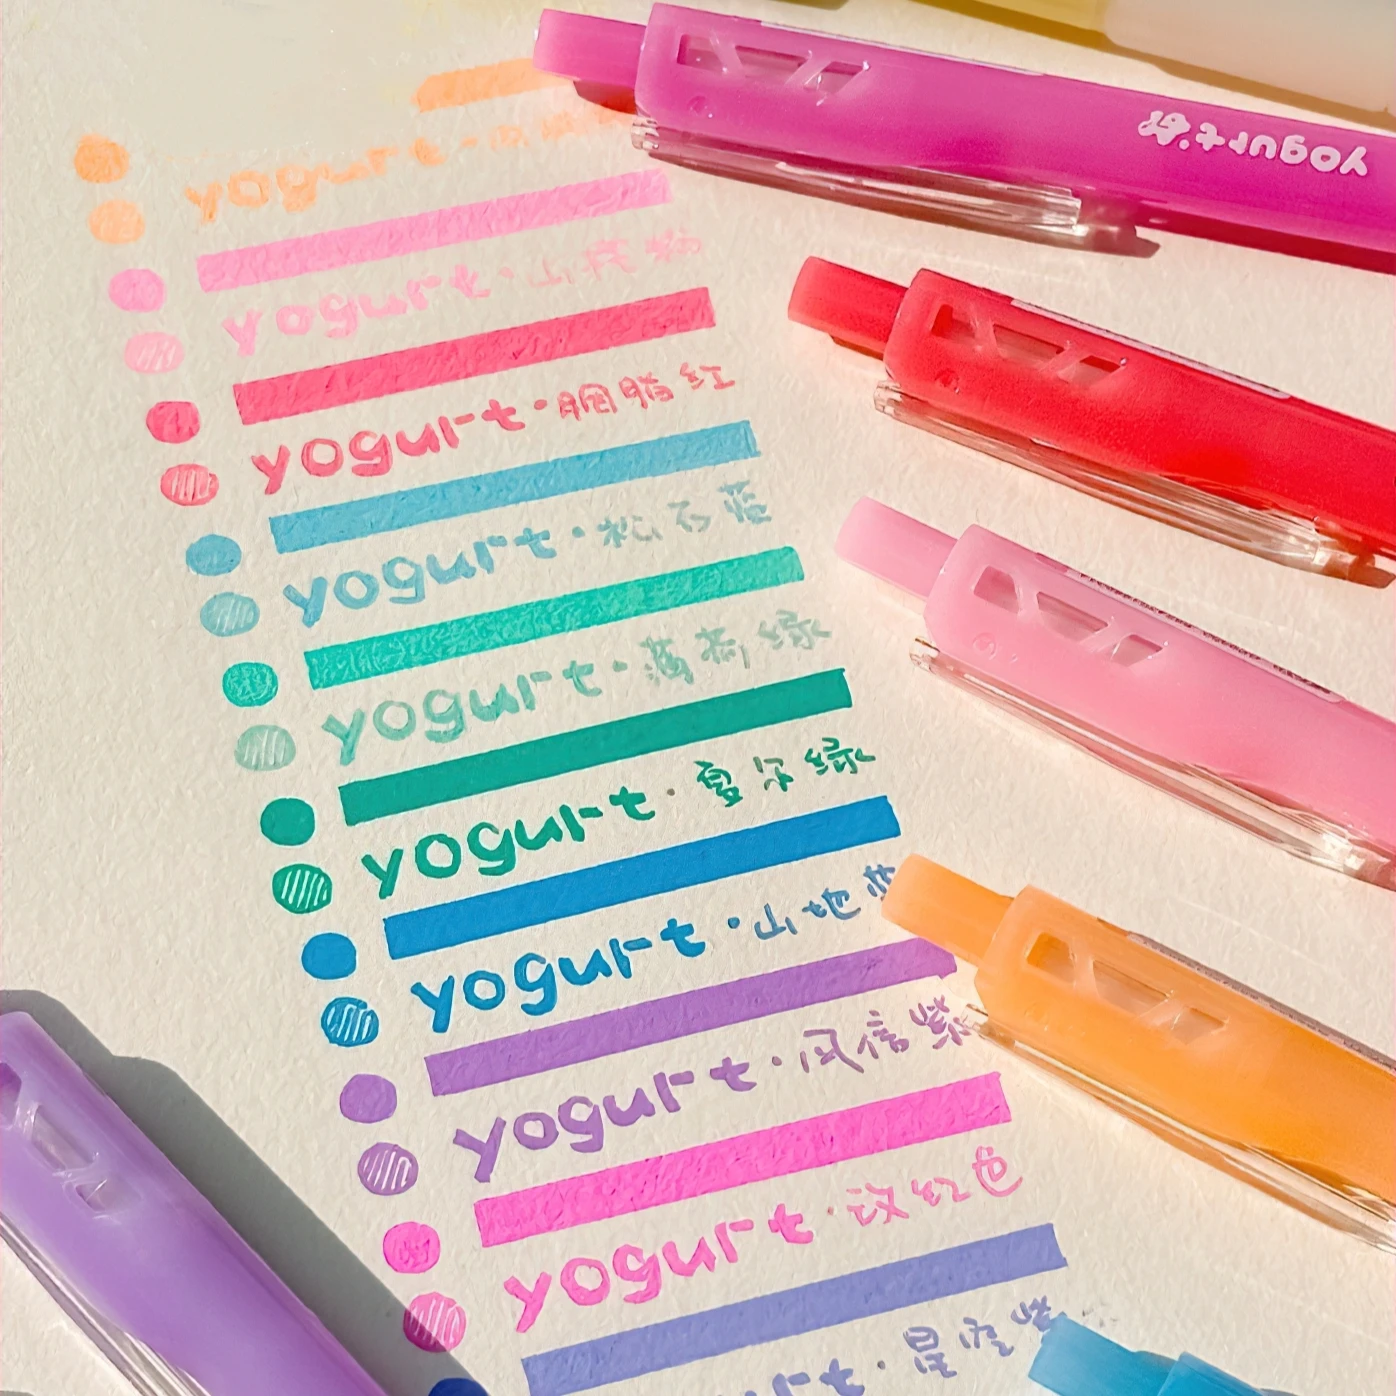 yogurt
yogurt
yogurt·山茱粉
yogurt·胭脂红
yogurt·松石蓝
yogurt·薄荷绿
yogurt·夏尔绿
yogurt·山地
yogurt·风信紫
yogurt·玫红色
星空紫